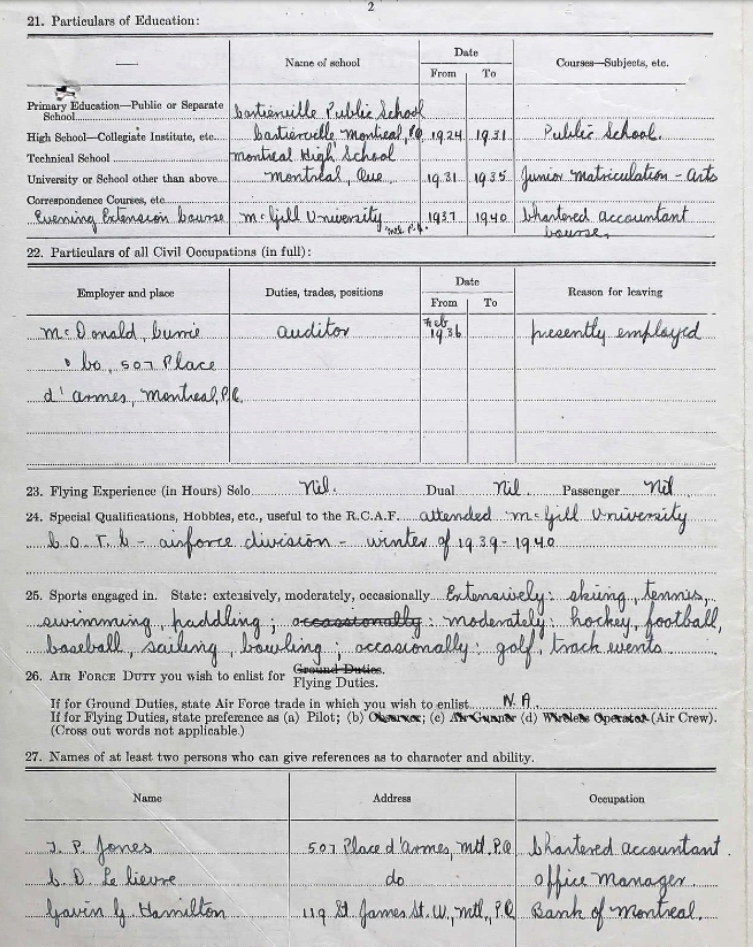 2
21. Particulars of Education:
— Name of school Date Courses—Subjects, etc.
From To
Primary Education—Public or Separate
School Cartierville Public School
High School—Collegiate Institute, etc. Cartierville Montreal, P.Q. 1924 1931 Public School.
Technical School Montreal High School
University or School other than above Montreal, Que 1931 1935 Junior Matriculation - Arts
Correspondence Courses, etc
Evening Extension Course McGill University Mtl. P.Q. 1937 1940 Chartered accountant
Course.
22. Particulars of all Civil Occupations (in full):
Employer and place Duties, trades, positions Date Reason for leaving
From To
McDonald, Currie auditor Feb 1936 presently employed
& Co, 507 Place
d'armes, Montreal, P.Q.
23. Flying Experience (in Hours) Solo Nil. Dual Nil. Passenger Nil
24. Special Qualifications, Hobbies, etc., useful to the R.C.A.F. attended McGill University
C.O.T.C - airforce division - winter of 1939-1940
25. Sports engaged in. State: extensively, moderately, occasionally Extensively: skiing, tennis,
swimming, paddling; occassionally: moderately: hockey, football,
baseball, sailing, bowling; occasionally: golf, track events
26. AIR FORCE DUTY you wish to enlist for Ground Duties.
Flying Duties.
If for Ground Duties, state Air Force trade in which you wish to enlist N.A.
If for Flying Duties, state preference as (a) Pilot; (b) Observer; (c) Air Gunner (d) Wireless Operator (Air Crew).
(Cross out words not applicable.)
27. Names of at least two persons who can give references as to character and ability.
Name Address Occupation
J. P. Jones 507 Place d'Armes, Mtl. P.Q. Chartered accountant.
C. D. Le lievre do Office Manager.
Gavin G. Hamilton 119 St James St. W., Mtl., P.Q. Bank of Montreal.